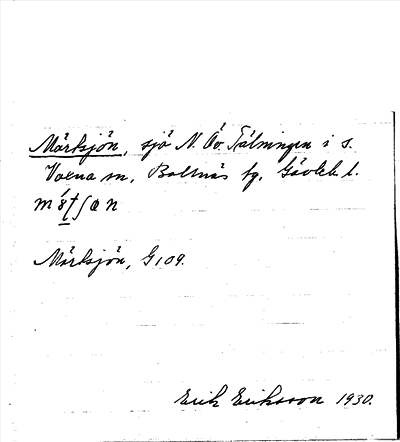 Mörtsjön, sjö N. Öv. Tälningen i s.
Voxna sn, Bollnäs fg, Gävleb. l.
Mörtsjön, G109.
Erik Eriksson 1930.